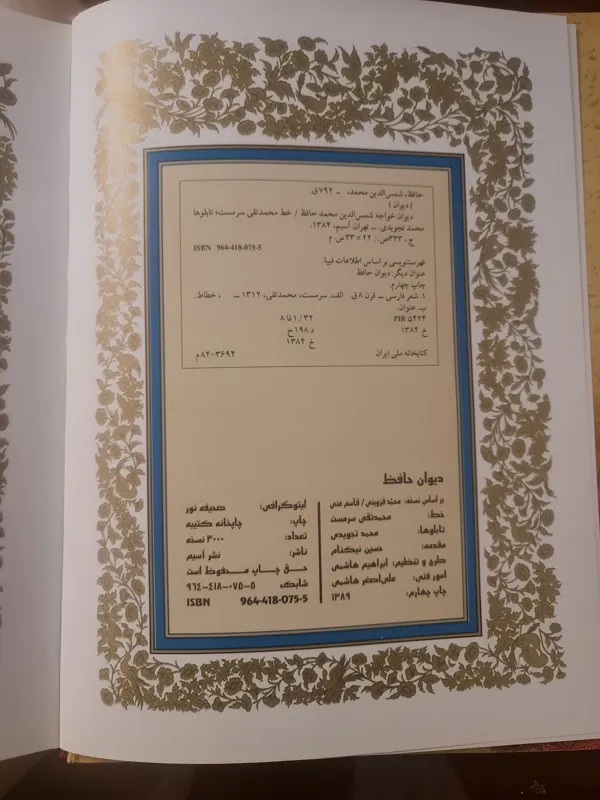 حافظ، شمس‌الدین محمد، - ۷۹۲ق.
[دیوان]
دیوان خواجه شمس‌الدین محمد حافظ / خط محمدتقی سرمست؛ تابلوها
محمد تجویدی. ــ تهران: آسیم، ۱۳۸۴.
ج، ۳۳۳ص.: ۲۲×۳۳س.م
ISBN 964-418-075-5
فهرستنویسی بر اساس اطلاعات فیپا.
عنوان دیگر: دیوان حافظ
چاپ چهارم.
۱. شعر فارسی ــ قرن ۸ق. الف. سرمست، محمدتقی، ۱۳۱۲ ــ ، خطاط.
ب. عنوان.
PIR ۵۴۲۴ ۸فا۱/۳۲
خ ۱۳۸۴ د۱۹۸ح
خ ۱۳۸۴
کتابخانه ملی ایران ۳۶۹۴-۸۴م
دیوان حافظ
بر اساس نسخه: محمد قزوینی / قاسم غنی
خط: محمدتقی سرمست
تابلوها: محمد تجویدی
مقدمه: حسین نیکنام
طرح و تنظیم: ابراهیم هاشمی
امور فنی: علی‌اصغر هاشمی
چاپ چهارم: ۱۳۸۹
لیتوگرافی: صحیفه نور
چاپ: چاپخانه کتیبه
تعداد: ۳۰۰۰ نسخه
ناشر: نشر آسیم
حق چاپ محفوظ است
شابک ۵-۰۷۵-۴۱۸-۹۶۴
ISBN 964-418-075-5